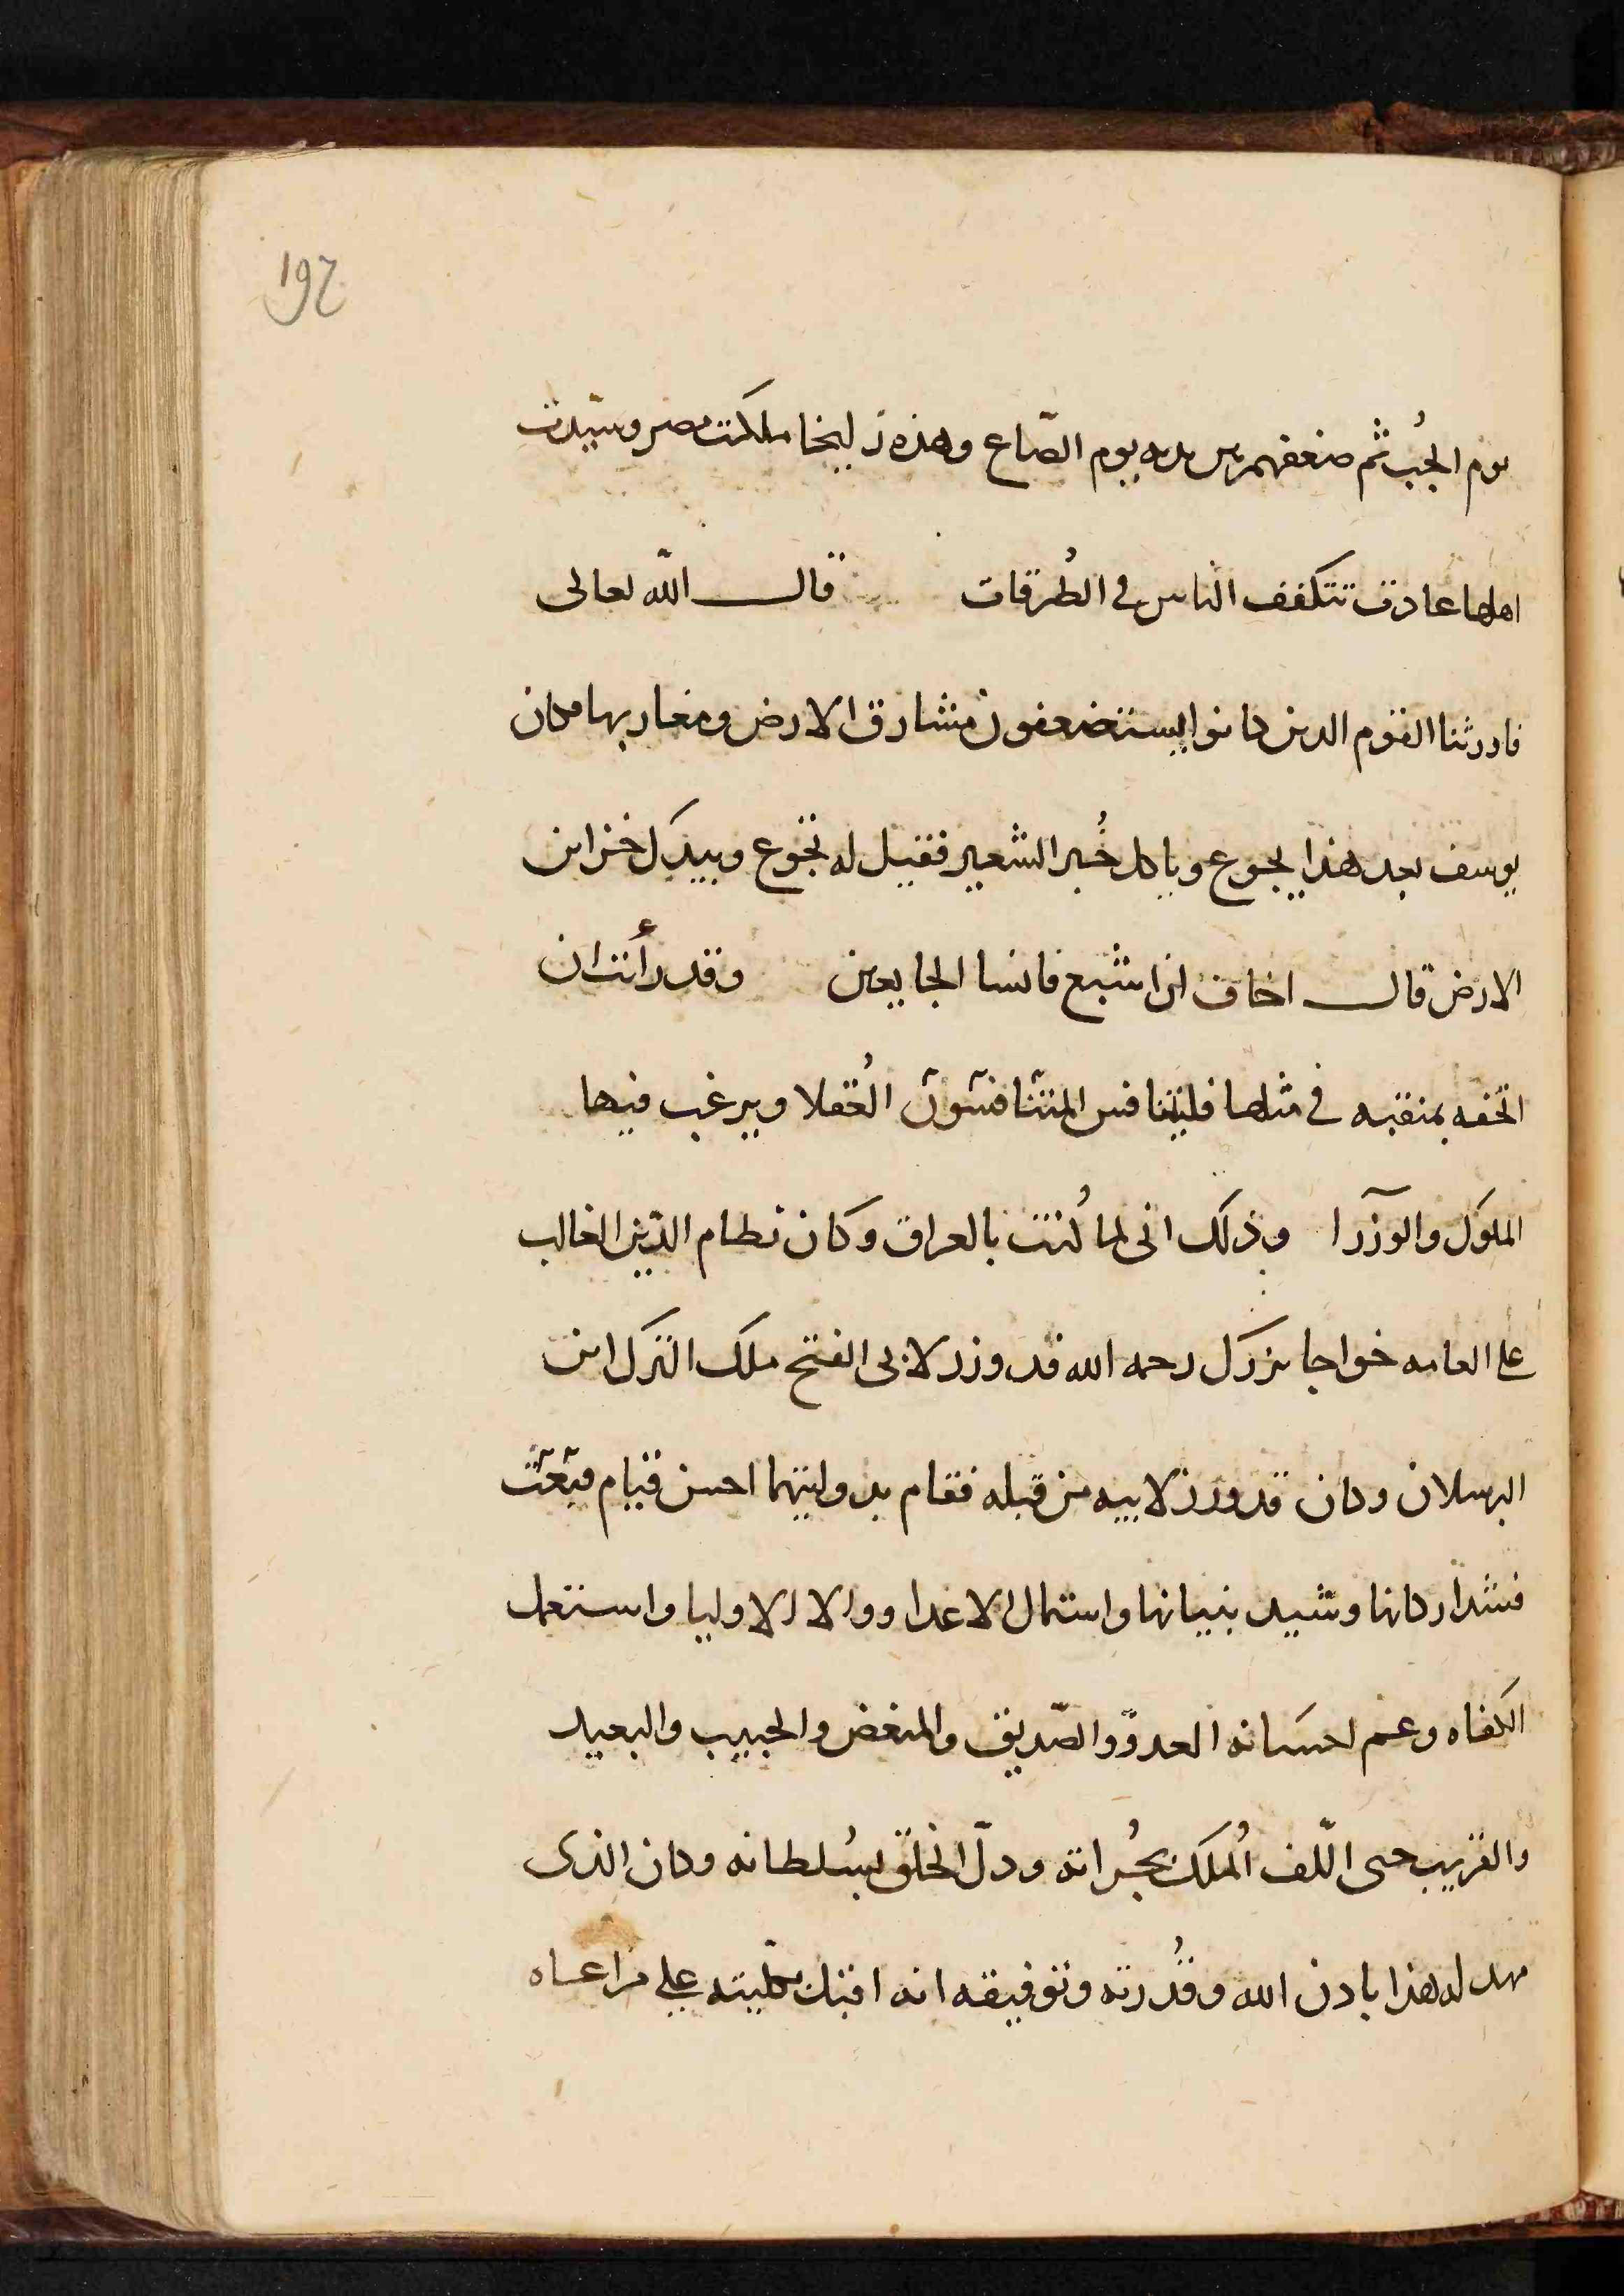 192
يوم الجُب ثم ضعفهم بين يديه يوم الصّاع وهذه زليخا ملكت مصر وسيدت
اهلها عادت تتكفف الناس في الطُرقات قال الله تعالى
فاورثنا القوم الذين كانوا يستضعفون مشارق الارض ومغاربها وكان
يوسف بعد هذا يجوع وياكل خُبز الشعير فقيل له تجوع وبيدك خزاين
الارض قال اخاف ان اشبع فانسا الجايعين وقد رأيت ان
اتحفه بمنقبه في مثلها فليتنافس المتنافسون العُقلا ويرغب فيها
الملوك والوزرا وذلك انى لما كُنت بالعراق وكان نظام الدّين الغالب
على العامه خواجا بزرك رحمه الله قد وزر لابى الفتح ملك الترك ابن
البرسلان وكان قد وزر لابيه من قبله فقام بدولتيهما احسن قيام
فشد اركانها وشيد بنيانها واستمال الاعدا ووالا الاوليا واستعمل
الكفاه وعم احسانه العدوّ والصّديق والمبغض والحبيب والبعيد
والقريب حتى المُلك بجُرانه وذلّ الخلق لسُلطانه وكان الذى
مهد له هذا باذن الله وقُدرته وتوفيقه انه بكليّته على مراعاه